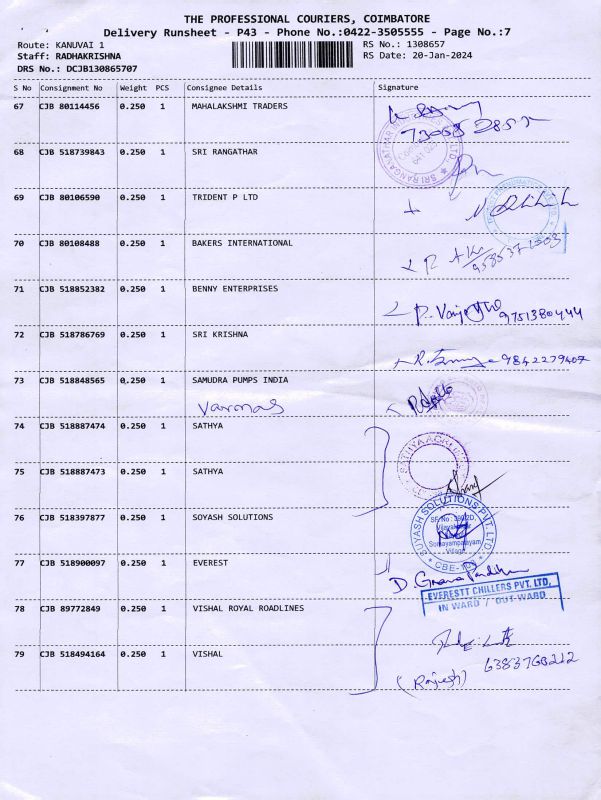 THE PROFESSIONAL COURIERS, COIMBATORE
Delivery Runsheet - P43 - Phone No.:0422-3505555 - Page No.:7
Route: KANUVAI 1 RS No.: 1308657
Staff: RADHAKRISHNA RS Date: 20-Jan-2024
DRS No.: DCJB130865707
S No Consignment No Weight PCS Consignee Details Signature
67 CJB 80114456 0.250 1 MAHALAKSHMI TRADERS
68 CJB 518739843 0.250 1 SRI RANGATHAR
69 CJB 80106590 0.250 1 TRIDENT P LTD
70 CJB 80108488 0.250 1 BAKERS INTERNATIONAL
71 CJB 518852382 0.250 1 BENNY ENTERPRISES
9751380444
72 CJB 518786769 0.250 1 SRI KRISHNA
9842279407
73 CJB 518848565 0.250 1 SAMUDRA PUMPS INDIA
74 CJB 518887474 0.250 1 SATHYA
75 CJB 518887473 0.250 1 SATHYA
76 CJB 518397877 0.250 1 SOYASH SOLUTIONS
SUYASH SOLUTIONS PVT. LTD.
77 CJB 518900097 0.250 1 EVEREST
EVERESTT CHILLERS PVT. LTD.
IN WARD / OUT WARD
78 CJB 89772849 0.250 1 VISHAL ROYAL ROADLINES
79 CJB 518494164 0.250 1 VISHAL
(Rajesh)